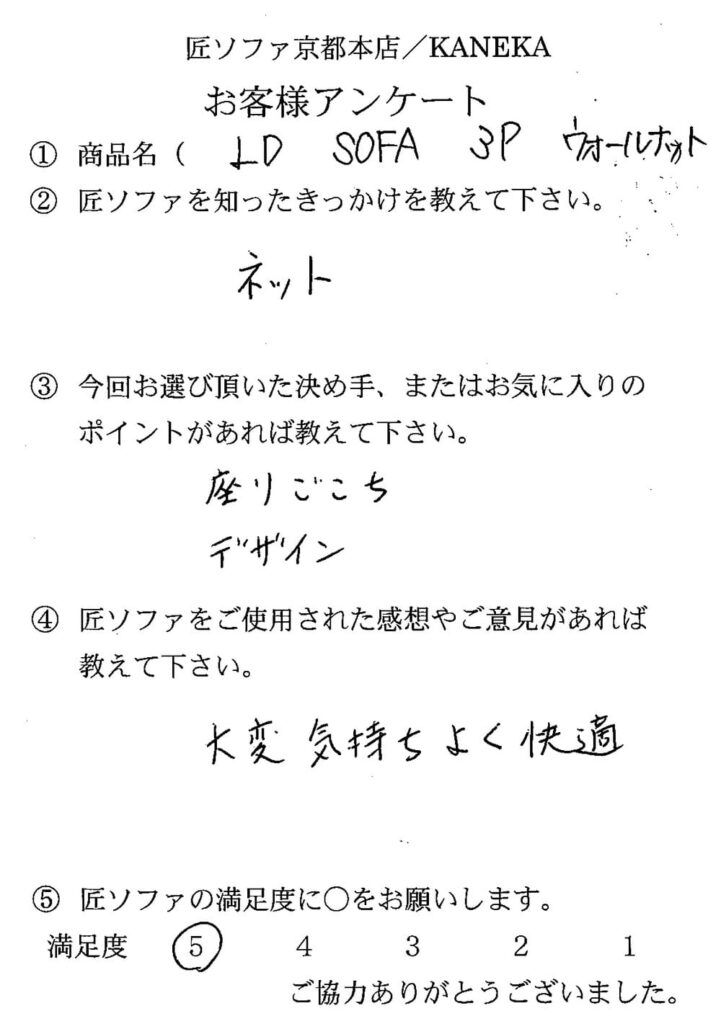 匠ソファ京都本店／KANEKA
お客様アンケート
① 商品名（ LD SOFA 3P ウォールナット
② 匠ソファを知ったきっかけを教えて下さい。
ネット
③ 今回お選び頂いた決め手、またはお気に入りの
ポイントがあれば教えて下さい。
座りごこち
デザイン
④ 匠ソファをご使用された感想やご意見があれば
教えて下さい。
大変気持ちよく快適
⑤ 匠ソファの満足度に○をお願いします。
満足度 5 4 3 2 1
ご協力ありがとうございました。